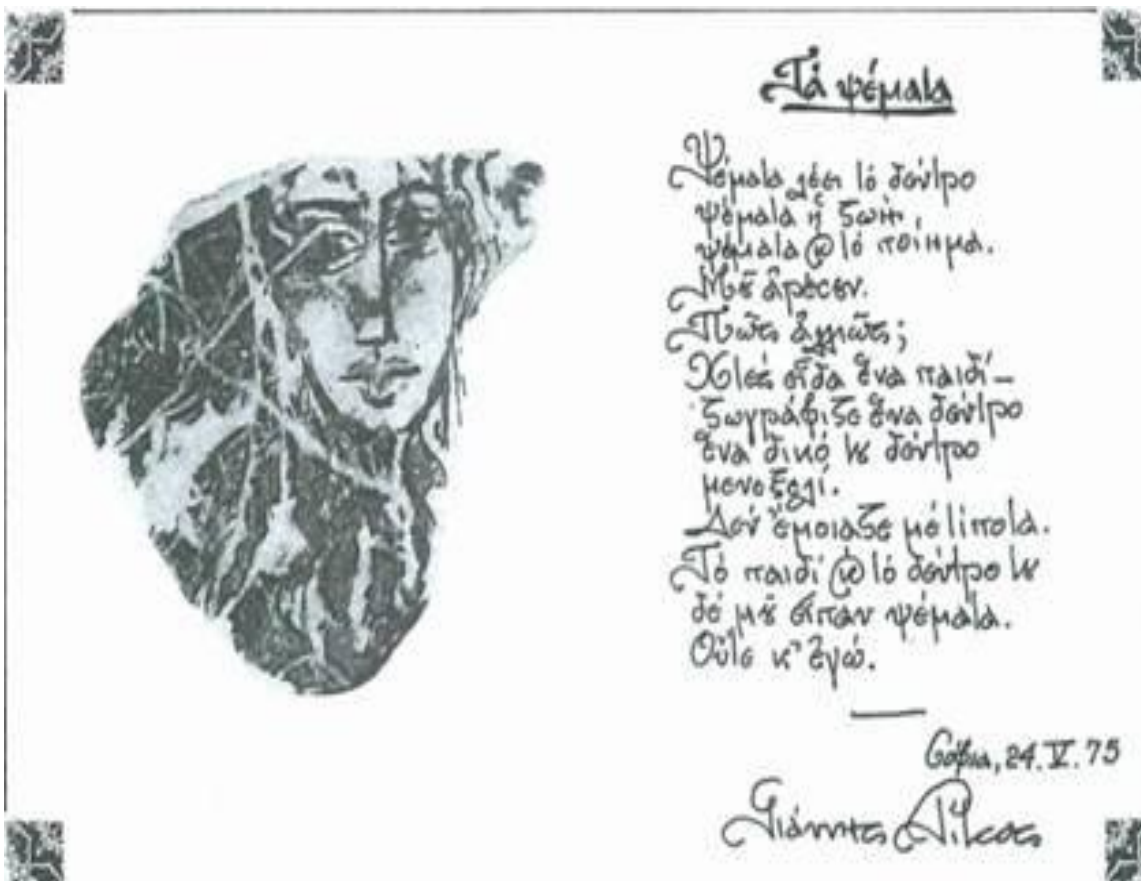 Τὰ ψέματα
Ψέματα λέει τὸ δέντρο
ψέματα ἡ ζωή,
ψέματα καὶ τὸ ποίημα.
Μοῦ ἀρέσουν.
Πῶς ἀλλιῶς;
Χτὲς εἶδα ἕνα παιδί –
ζωγράφιζε ἕνα δέντρο
ἕνα δικό του δέντρο
μενεξελί.
Δὲν ἔμοιαζε μὲ τίποτα.
Τὸ παιδὶ καὶ τὸ δέντρο του
δέ μοῦ εἶπαν ψέματα.
Οὔτε κ' ἐγώ.
Σόφια, 24.V.75
Γιάννης Ρίτσος